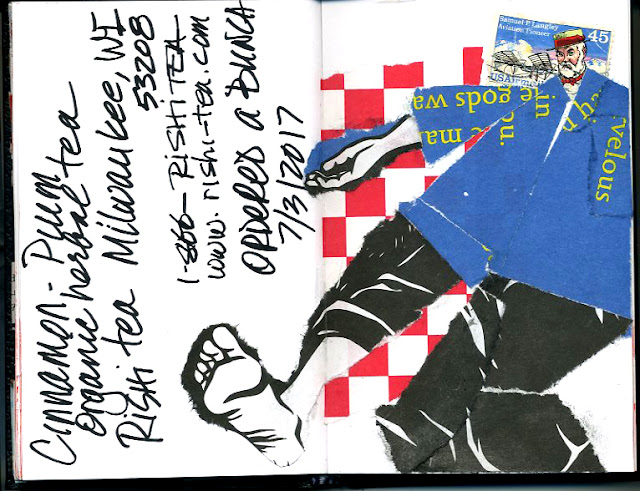 Cinnamon-Plum
Organic herbal tea
Rishi tea Milwaukee, WI
53208
1-866-RISHITEA
www.rishi-tea.com
ORDERED a BUNCH
7/3/2017
Samuel P. Langley
Aviation Pioneer
45
USAirmail
velous
in
gods wa
ou.
e ma